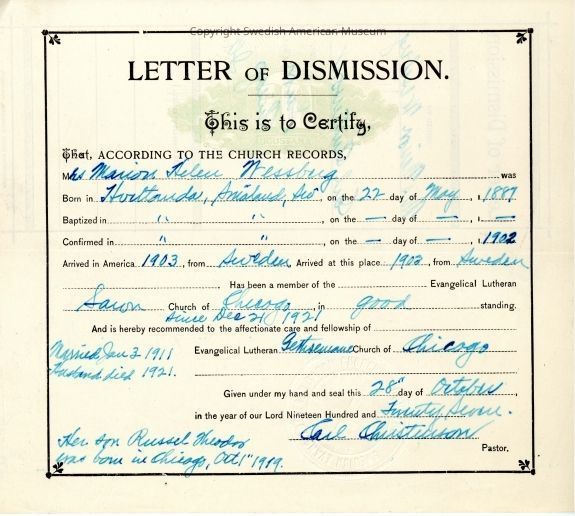 Copyright Swedish American Museum
LETTER OF DISMISSION.
This is to Certify,
That, ACCORDING TO THE CHURCH RECORDS,
Mrs Marion Helen Wessbug was
Born in Småland, on the 22 day of May, 1887
Baptized in " " , on the — day of —, 1 —
Confirmed in " " , on the — day of —, 1902
Arrived in America 1903, from Sweden Arrived at this place 1903, from Sweden
Has been a member of the Evangelical Lutheran
Saron Church of Chicago in good standing.
Since Dec 21 1921
And is hereby recommended to the affectionate care and fellowship of
Married Jan 3 1911 Evangelical Lutheran Gethsemane Church of Chicago
Husband died 1921.
Given under my hand and seal this 28" day of October,
in the year of our Lord Nineteen Hundred and Twenty Seven.
Carl Christenson
Pastor.
Her son Russel Theodor
was born in Chicago, Oct 1st 1919.